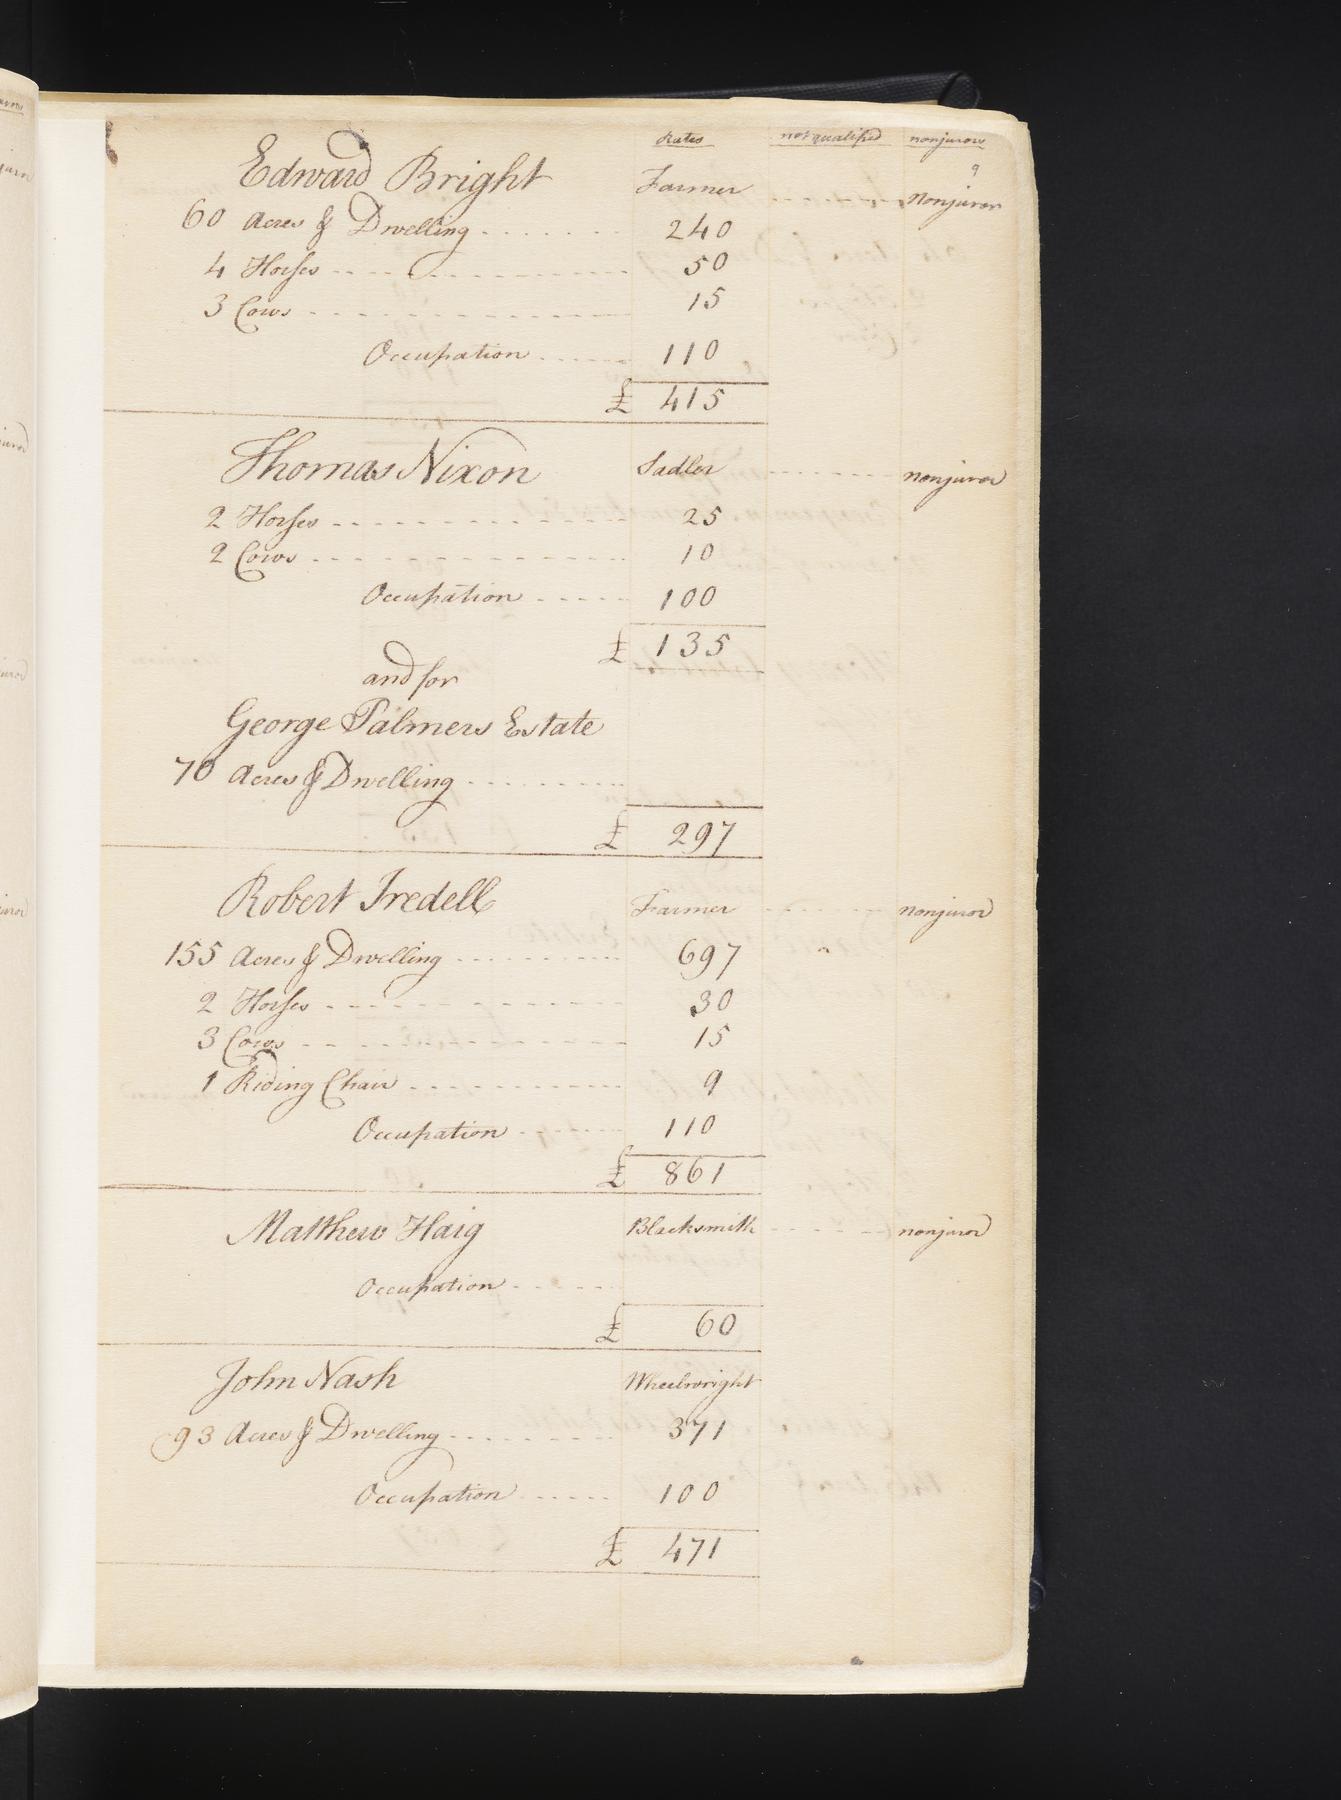 Rates not qualified nonjurors
9
Edward Bright Farmer Nonjuror
60 Acres & Dwelling 240
4 Horses 50
3 Cows 15
Occupation 110
£ 415
Thomas Nixon Sadler nonjuror
2 Horses 25
2 Cows 10
Occupation 100
£ 135
and for
George Palmers Estate
70 Acres & Dwelling
£ 297
Robert Iredell Farmer nonjuror
155 Acres & Dwelling 697
2 Horses 30
3 Cows 15
1 Riding Chair 9
Occupation 110
£ 861
Matthew Haig Blacksmith nonjuror
Occupation
£ 60
John Nash Wheelwright
93 Acres & Dwelling 371
Occupation 100
£ 471